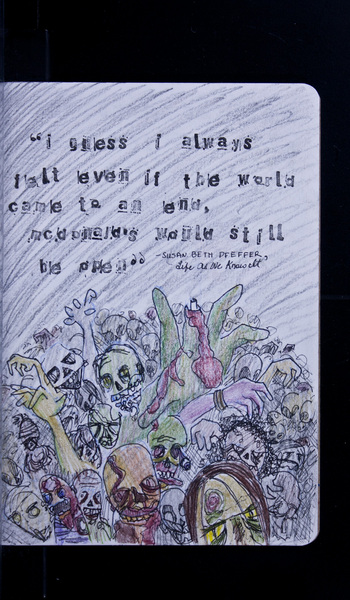 "i guess i always
felt even if the world
came to an end,
mcdonald's would still
be open"
-SUSAN BETH PFEFFER,
Life As We Knew It